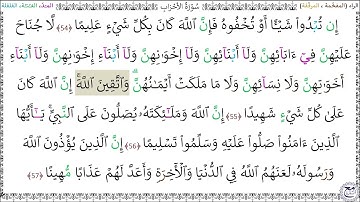 راء (المفخمة ، المرققة) سُورَةُ الأَحْزَابِ المد، الغنة، القلقلة
إِن تُبْدُوا۟ شَيْـًٔا أَوْ تُخْفُوهُ فَإِنَّ ٱللَّهَ كَانَ بِكُلِّ شَىْءٍ عَلِيمًا (54) لَّا جُنَاحَ
عَلَيْهِنَّ فِىٓ ءَابَآئِهِنَّ وَلَآ أَبْنَآئِهِنَّ وَلَآ إِخْوَٰنِهِنَّ وَلَآ أَبْنَآءِ إِخْوَٰنِهِنَّ وَلَآ أَبْنَآءِ
أَخَوَٰتِهِنَّ وَلَا نِسَآئِهِنَّ وَلَا مَا مَلَكَتْ أَيْمَـٰنُهُنَّ ۗ وَٱتَّقِينَ ٱللَّهَ ۚ إِنَّ ٱللَّهَ كَانَ
عَلَىٰ كُلِّ شَىْءٍ شَهِيدًا (55) إِنَّ ٱللَّهَ وَمَلَـٰٓئِكَتَهُۥ يُصَلُّونَ عَلَى ٱلنَّبِىِّ ۚ يَـٰٓأَيُّهَا
ٱلَّذِينَ ءَامَنُوا۟ صَلُّوا۟ عَلَيْهِ وَسَلِّمُوا۟ تَسْلِيمًا (56) إِنَّ ٱلَّذِينَ يُؤْذُونَ ٱللَّهَ
وَرَسُولَهُۥ لَعَنَهُمُ ٱللَّهُ فِى ٱلدُّنْيَا وَٱلْـَٔاخِرَةِ وَأَعَدَّ لَهُمْ عَذَابًا مُّهِينًا (57)